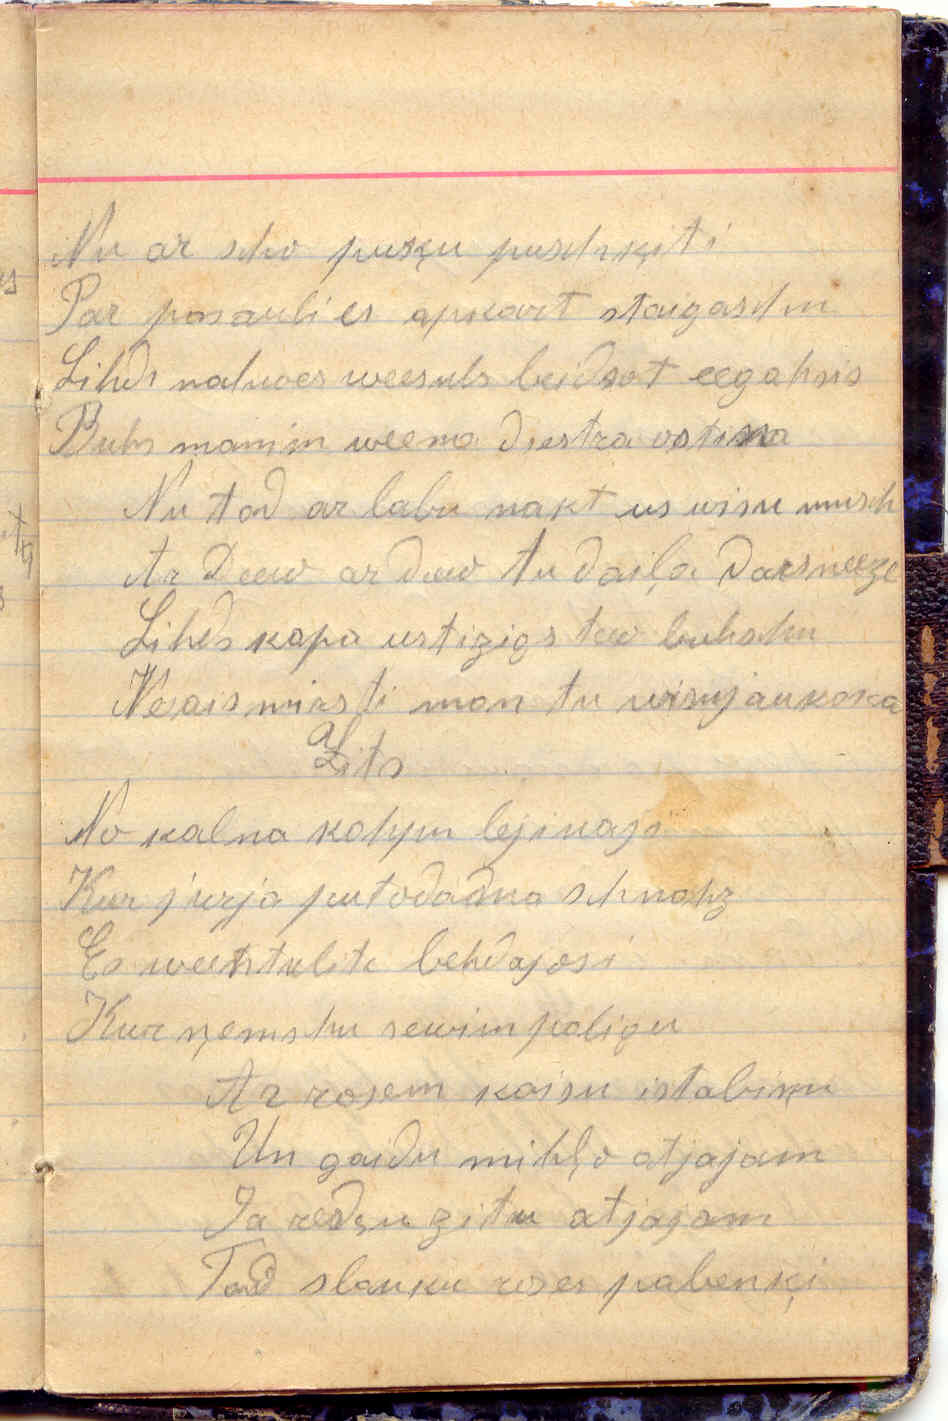 Nu ar scho pusķu puschķiti
Par pasauli es apkart staigaschu
Lihds nahwes weesuls beidsot eegahsis
Buhs manim weena dsestra ostina
Nu tad ar labu nakt us wisu musch
Ar Deew ar deew tu daiļa daesneeze
Lihds kapa ustizigs tew buhschu
Neaismirsti man tu wisujaukaka
Zits
No kalna kahpu lejinaji
Kur jurja putodadna schnahz
Es weetstulite behdajosi
Kur ņemschu sewim paligu
Ar rosem kaisu istabiņu
Un gaidu mihļo atjajam
Ja redsu zitu atjajam
Tad slauku roses pabenķi